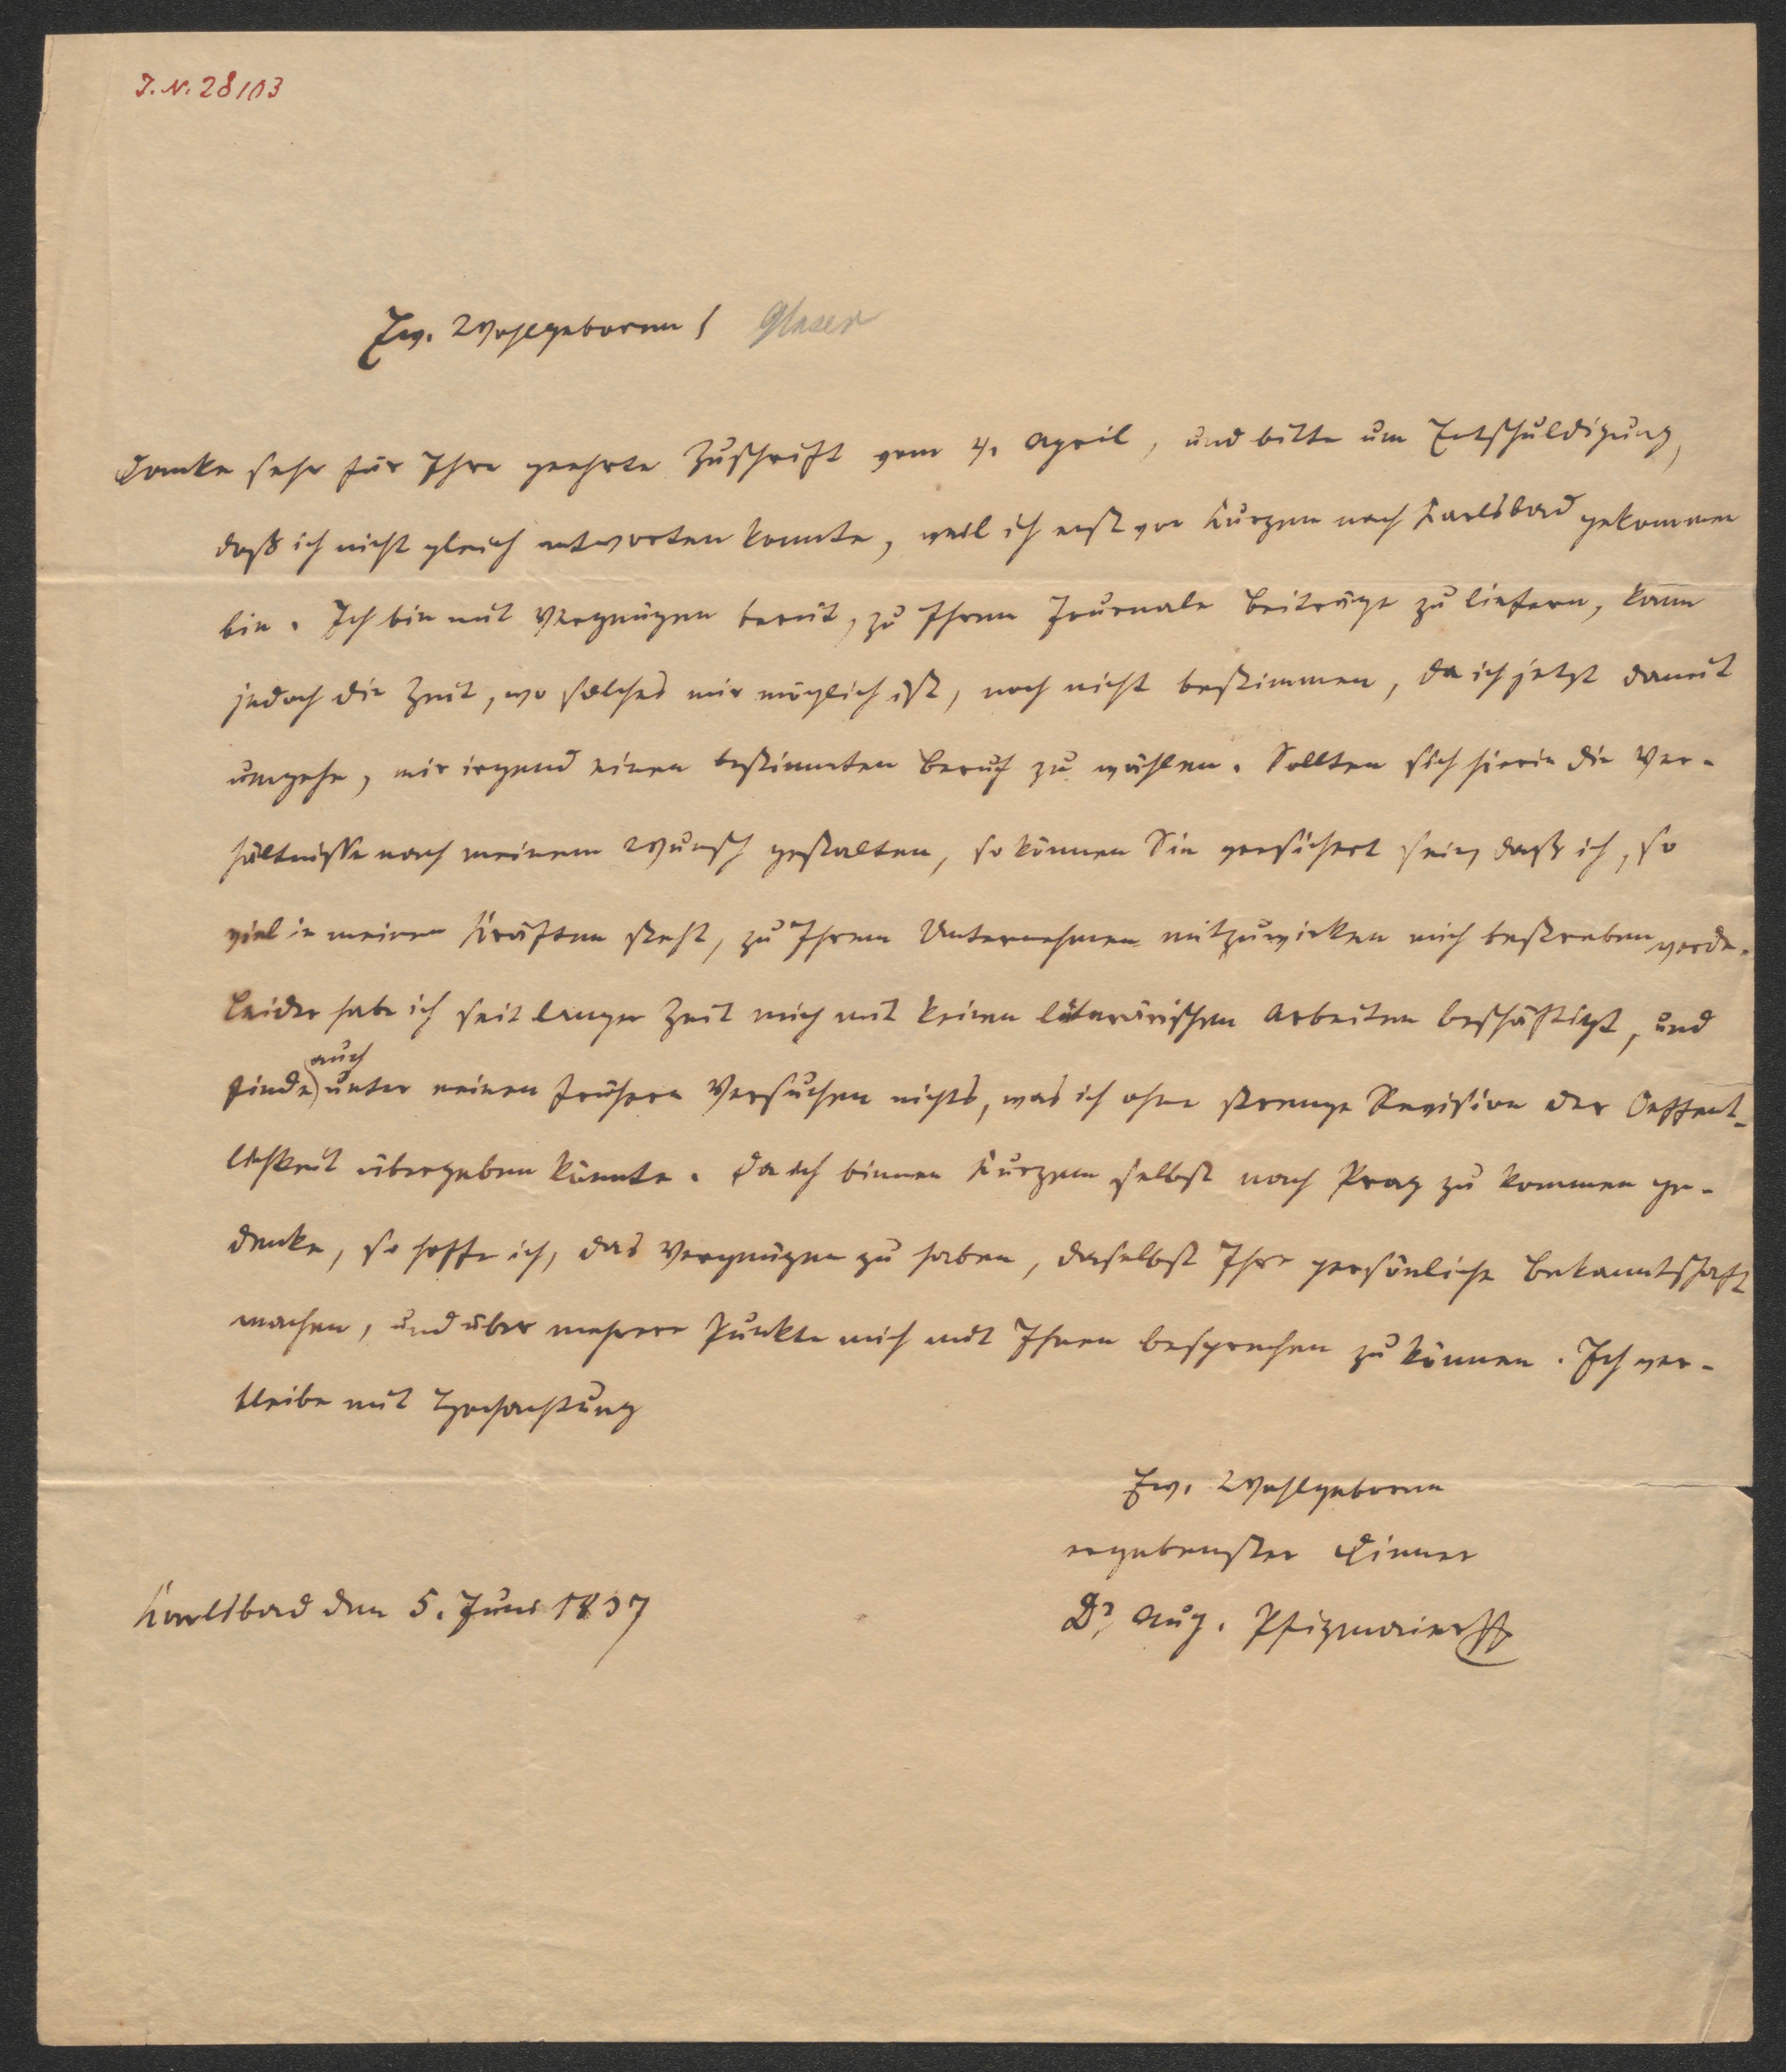 I. N. 28103
Ew. Wohlgeboren! Glaser
Danke sehr für Ihre geehrte Zuschrift vom 4. April, und bitte um Entschuldigung,
daß ich nicht gleich antworten konnte, weil ich erst vor Kurzem nach Karlsbad gekommen
bin. Ich bin mit Vergnügen bereit, zu Ihrem Journale Beiträge zu liefern, kann
jedoch die Zeit, wo solches mir möglich ist, noch nicht bestimmen, da ich jetzt damit
umgehe, mir irgend einen bestimmten Beruf zu wählen. Sollten sich hierin die Ver-
hältnisse nach meinem Wunsch gestalten, so können Sie versichert sein, daß ich, so
viel in meinen Kräften steht, zu Ihrem Unternehmen mitzuwirken mich bestreben werde.
Leider habe ich seit langer Zeit mich mit keinen literärischen Arbeiten beschäftigt, und
auch
finde unter meinen frühern Versuchen nichts, was ich ohne strenge Revision der Oeffent-
lichkeit übergeben könnte. Da ich binnen Kurzem selbst nach Prag zu kommen ge-
denke, so hoffe ich, das Vergnügen zu haben, daselbst Ihre persönliche Bekanntschaft
machen, und über mehrere Punkte mich mit Ihnen besprechen zu können. Ich ver-
bleibe mit Hochachtung
Ew. Wohlgeboren
ergebenster Diener
Karlsbad den 5. Juni 1837
Dr. Aug. Pfizmaier